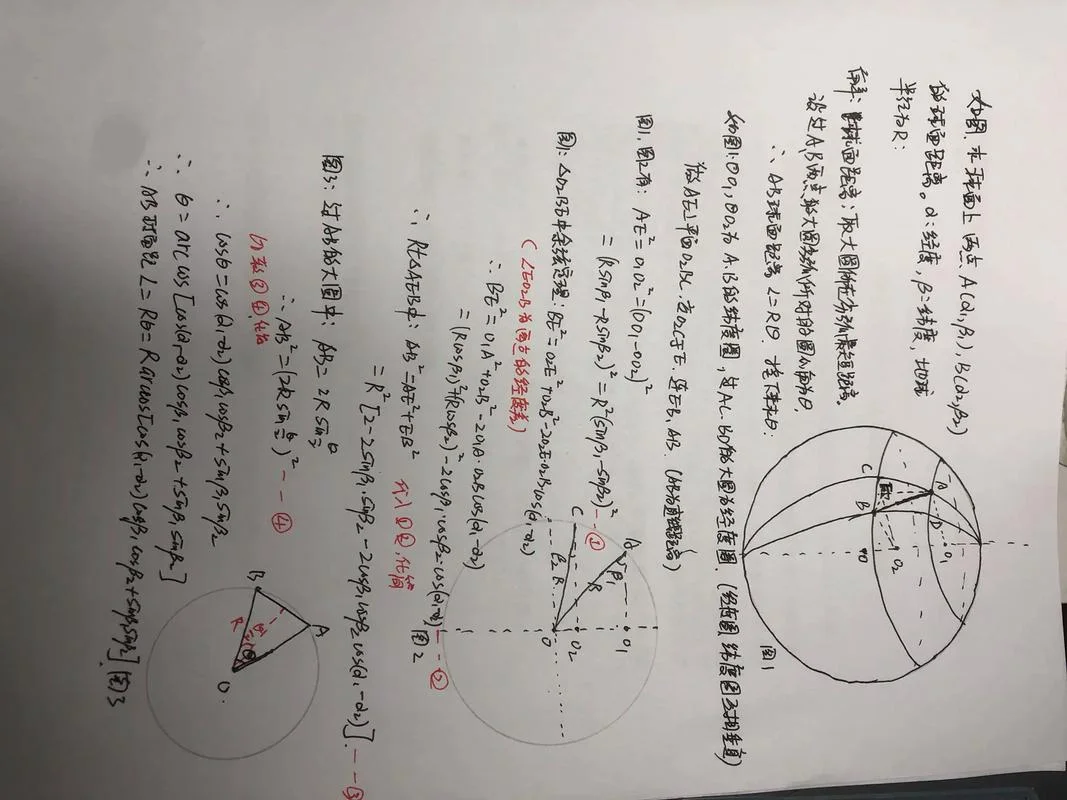 如图. 求球面上两点 A(α₁,β₁), B(α₂,β₂)
的球面距离。α:经度, β:纬度, 地球
半径为R:
解: 球面距离: 取大圆
设过A,B两点的大圆劣弧所对的圆心角为θ.
∴ AB球面距离 L=Rθ. 接下来求θ:
如图1: ⊙O₁, ⊙O₂为 A.B的纬度圈, 过AC. BD的大圆为经度圈. (经度圈, 纬度圈互相垂直)
做AE⊥平面O₂BC. 交O₂C于E. 连EB, AB. (AB为直线距离)
图1, 图2有: AE²=O₁O₂²=(OO₁-OO₂)²
=(Rsinβ₁-Rsinβ₂)²=R²(sinβ₁-sinβ₂)² --①
图1: △O₂BE中余弦定理: BE²=O₂E²+O₂B²-2O₂E·O₂Bcos(α₁-α₂)
(∠EO₂B为两点的经度差)
∴ BE²=O₁A²+O₂B²-2O₁A·O₂Bcos(α₁-α₂)
=(Rcosβ₁)²+(Rcosβ₂)²-2cosβ₁·cosβ₂·cos(α₁-α₂) --②
∴ Rt△AEB中: AB²=AE²+EB² 代入①②, 化简
=R²[2-2sinβ₁·sinβ₂-2cosβ₁cosβ₂cos(α₁-α₂)]. --③
图3: 过AB的大圆中: AB=2R sin θ/2
∴ AB²=(2R sin θ/2)² --④
③④, 化简
∴ cosθ=cos(α₁-α₂)cosβ₁cosβ₂+sinβ₁sinβ₂
∴ θ=arccos[cos(α₁-α₂)cosβ₁cosβ₂+sinβ₁sinβ₂]
∴ AB球面距 L=Rθ=Rarccos[cos(α₁-α₂)cosβ₁cosβ₂+sinβ₁sinβ₂]
A
D
O₁
C
E
B
O₂
O
图1
A
β₁
O₁
R
C
β₂
R
O₂
O
图2
A
B
R
θ
O
图3